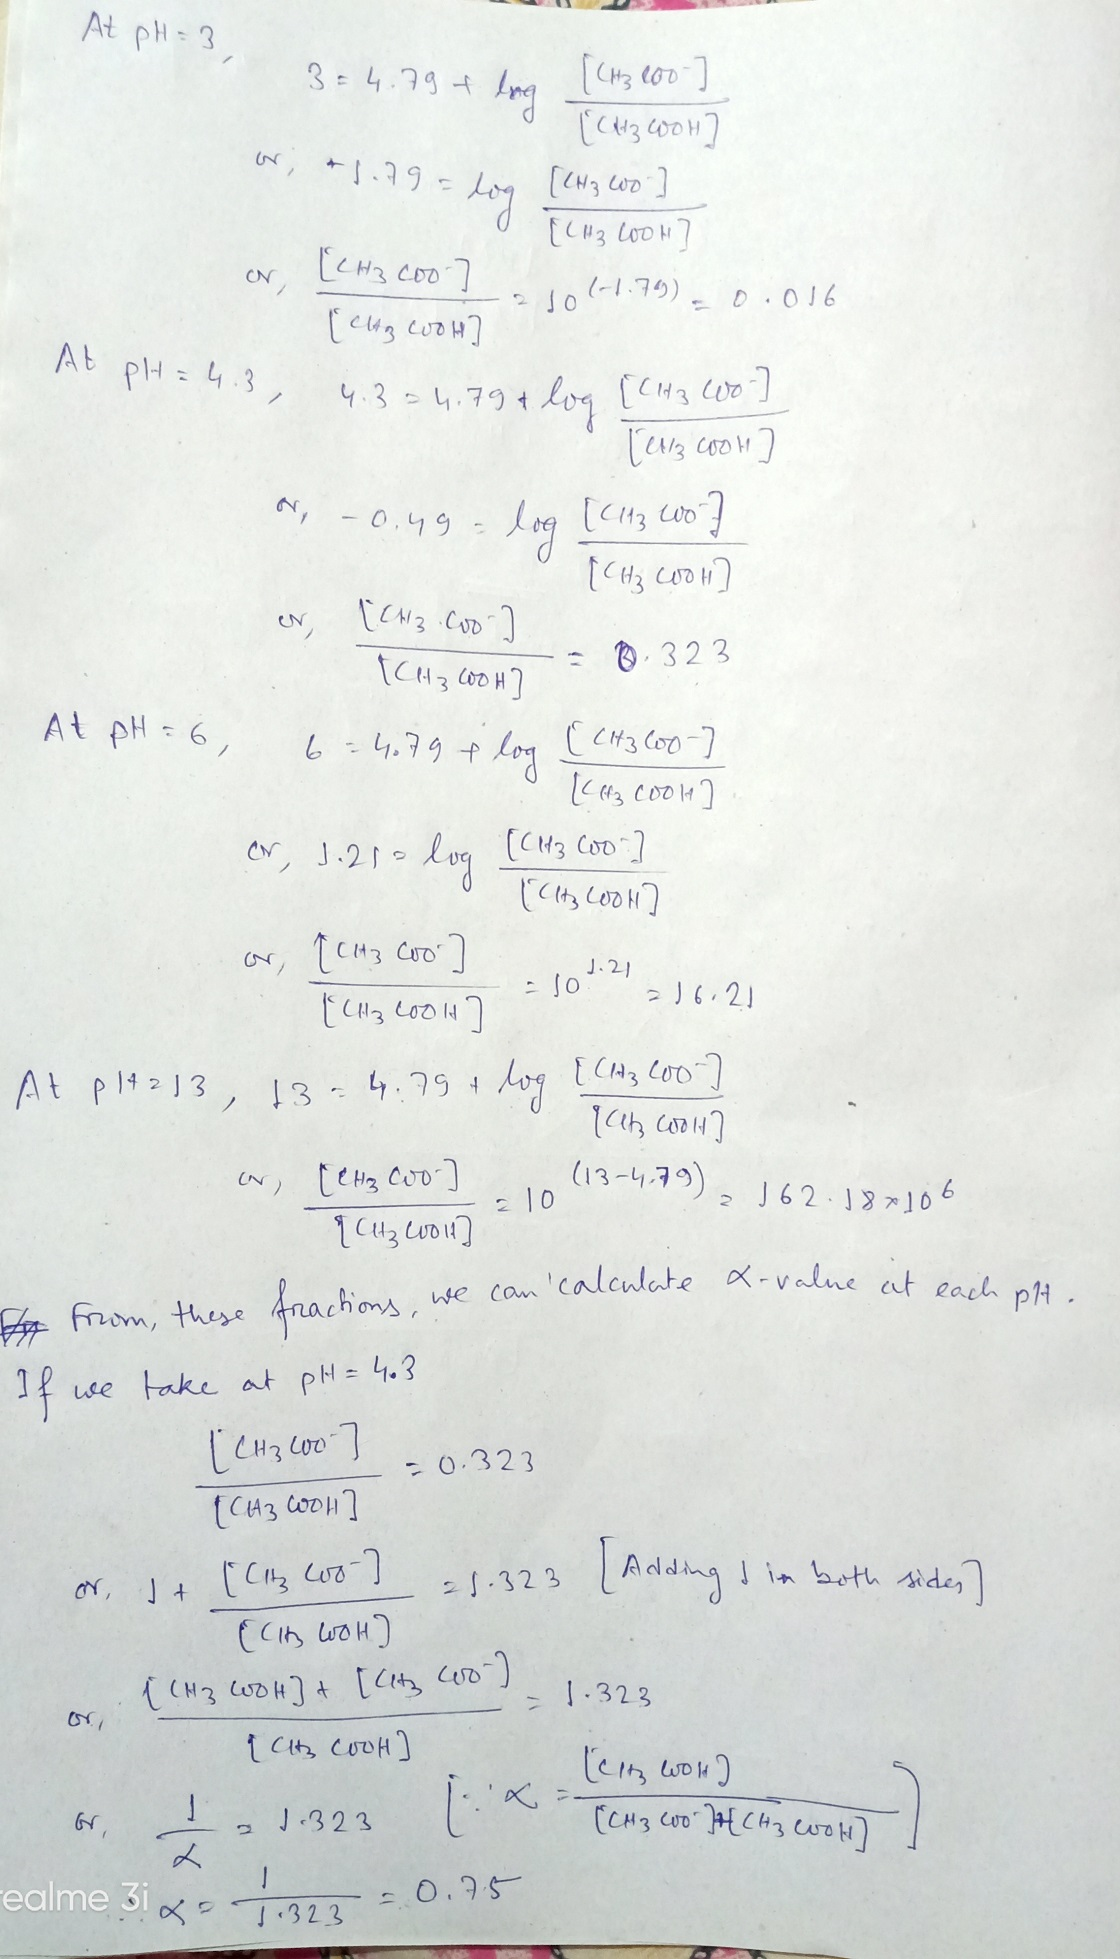 At pH = 3,
3 = 4.79 + log [CH3COO-] / [CH3COOH]
or, +1.79 = log [CH3COO-] / [CH3COOH]
or, [CH3COO-] / [CH3COOH] = 10^(-1.79) = 0.016
At pH = 4.3, 4.3 = 4.79 + log [CH3COO-] / [CH3COOH]
or, -0.49 = log [CH3COO-] / [CH3COOH]
or, [CH3COO-] / [CH3COOH] = 0.323
At pH = 6, 6 = 4.79 + log [CH3COO-] / [CH3COOH]
or, 1.21 = log [CH3COO-] / [CH3COOH]
or, [CH3COO-] / [CH3COOH] = 10^1.21 = 16.21
At pH = 13, 13 = 4.79 + log [CH3COO-] / [CH3COOH]
or, [CH3COO-] / [CH3COOH] = 10^(13-4.79) = 162.18 × 10^6
From, these fractions, we can calculate α-value at each pH.
If we take at pH = 4.3
[CH3COO-] / [CH3COOH] = 0.323
or, 1 + [CH3COO-] / [CH3COOH] = 1.323 [Adding 1 in both sides]
or, [CH3COOH] + [CH3COO-] / [CH3COOH] = 1.323
or, 1 / α = 1.323 [∵ α = [CH3COOH] / [CH3COO-]+[CH3COOH]]
∴ α = 1 / 1.323 = 0.75
realme 3i